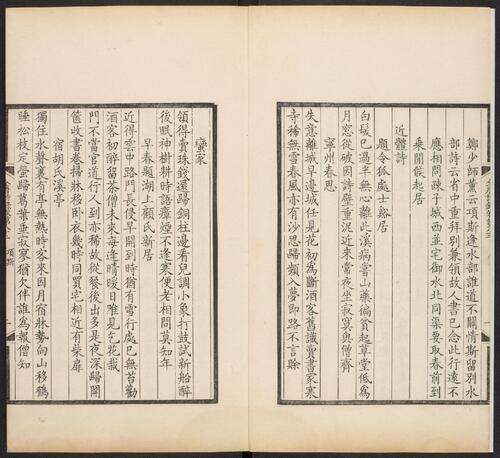 鄭少師薰云項斯逢水部誰道不關情斯留別水
部詩云省中重拜別兼領故人書已念此行遠不
應相問疎子城西並宅御水北同渠要取春前到
乘閒候起居
近體詩
題令狐處士谿居
白髮已過半無心離此溪病嘗山藥徧貧起草堂低為
月窓從破因詩壁重泥近來常夜坐寂寞與僧齊
寧州春思
失意離城早邊城任見花初為斷酒客舊識賣書家寒
寺稀無雪春風亦有沙思歸頻入夢即路不言賒
項斯
一
蠻家
領得賣珠錢還歸銅柱邊看兒調小象打鼓試新船醉
後眠神樹耕時語瘴煙不逢寒便老相問莫知年
早春題湖上顧氏新居
近得雲中路門長侵早開到時猶有雪行處已無苔勸
酒客初醉留茶僧未來每逢晴暖日唯見乞花栽
門不當官道行人到亦稀故從餐後出多是夜深歸開
篋收書卷掃牀移臥衣幾時同買宅相近有柴扉
宿胡氏溪亭
獨住水聲裏有亭無熱時客來因月宿牀勢向山移鶴
睡松枝定螢歸葛葉垂寂寥猶欠伴誰為報僧知